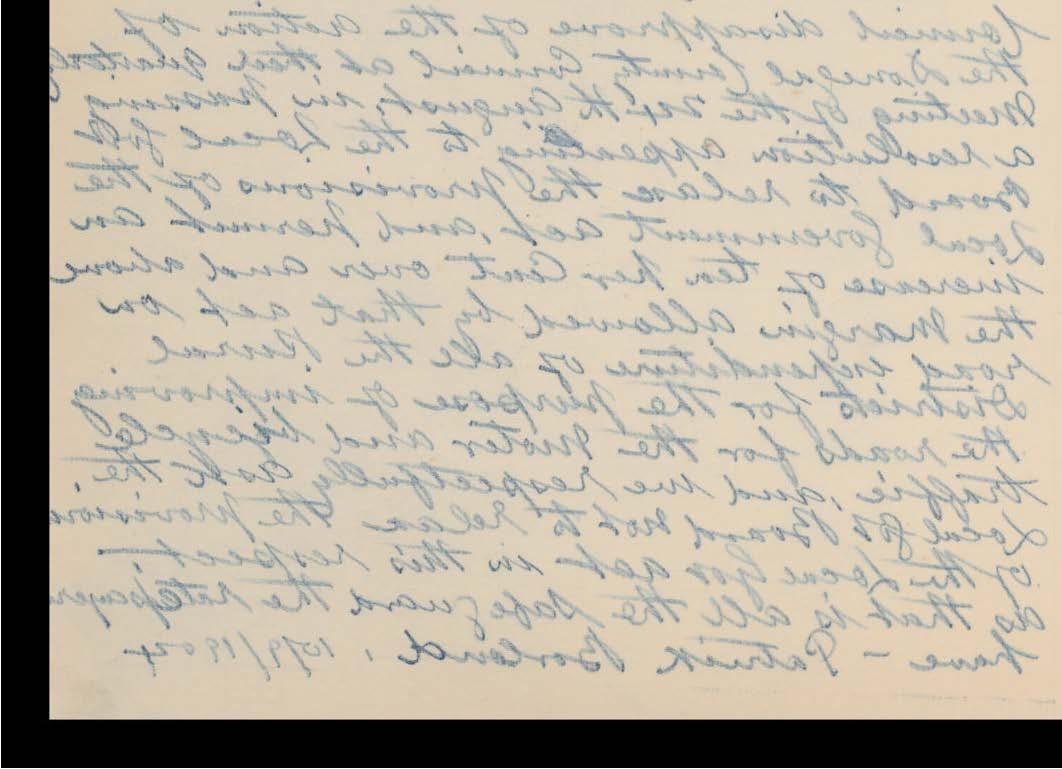 Council disapprove of the action of
the Donegal County Council at their Quarterly
Meeting of the 24th August, in passing
a resolution appealing to the Local Gov
Board to relax the provisions of the
Local Government act, and permit an
increase of ten per Cent over and above
the Margin allowed by that act on
road expenditure of all the Rural
Districts for the purpose of improving
the roads for the Motor and bicycle
traffic, and we respectfully ask the
Local Gov Board not to relax the provisions
of the Local Gov act in this respect
as that is all the safeguard the ratepayers
have – Patrick Borland, 15/9/1904